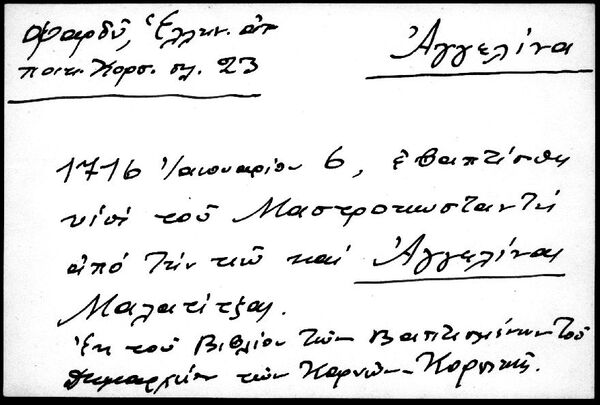 Φαρδῦ, Ἑλλην. ἀπ
ποικ. Κορσ. σελ. 23
Ἀγγελίνα
1716 Ἰανουαρίου 6, ἐβαπτίσθη
υἱὸς τοῦ Μαστροκωσταντῆ
ἀπό τὴν καὶ Ἀγγελίνας
Μαλατίτζας.
Ἐκ τοῦ Βιβλίου τῶν Βαπτισμένων τοῦ
Δημαρχείου τῶν Καρυῶν-Κορσικῆς.